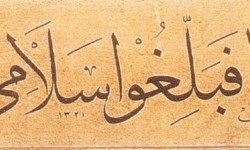 فَبَلِّغُوا سَلَامِي
١٣٢١